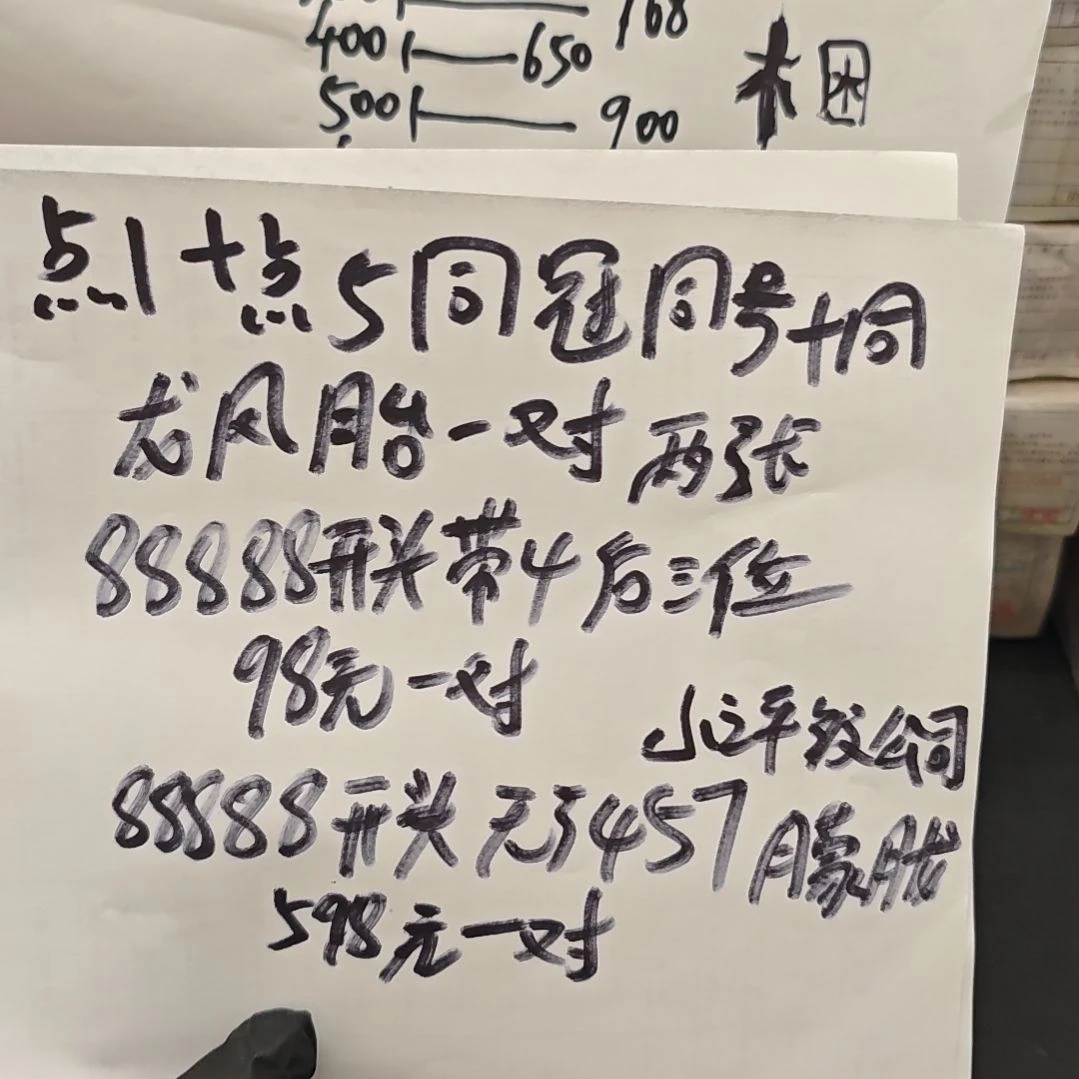 168
400 650
500 900
木 困
点1+点5同冠同号+同
龙凤胎一对两张
88888开头带4后三位
98元一对
小平及公司
88888开头无3457朦胧
598元一对